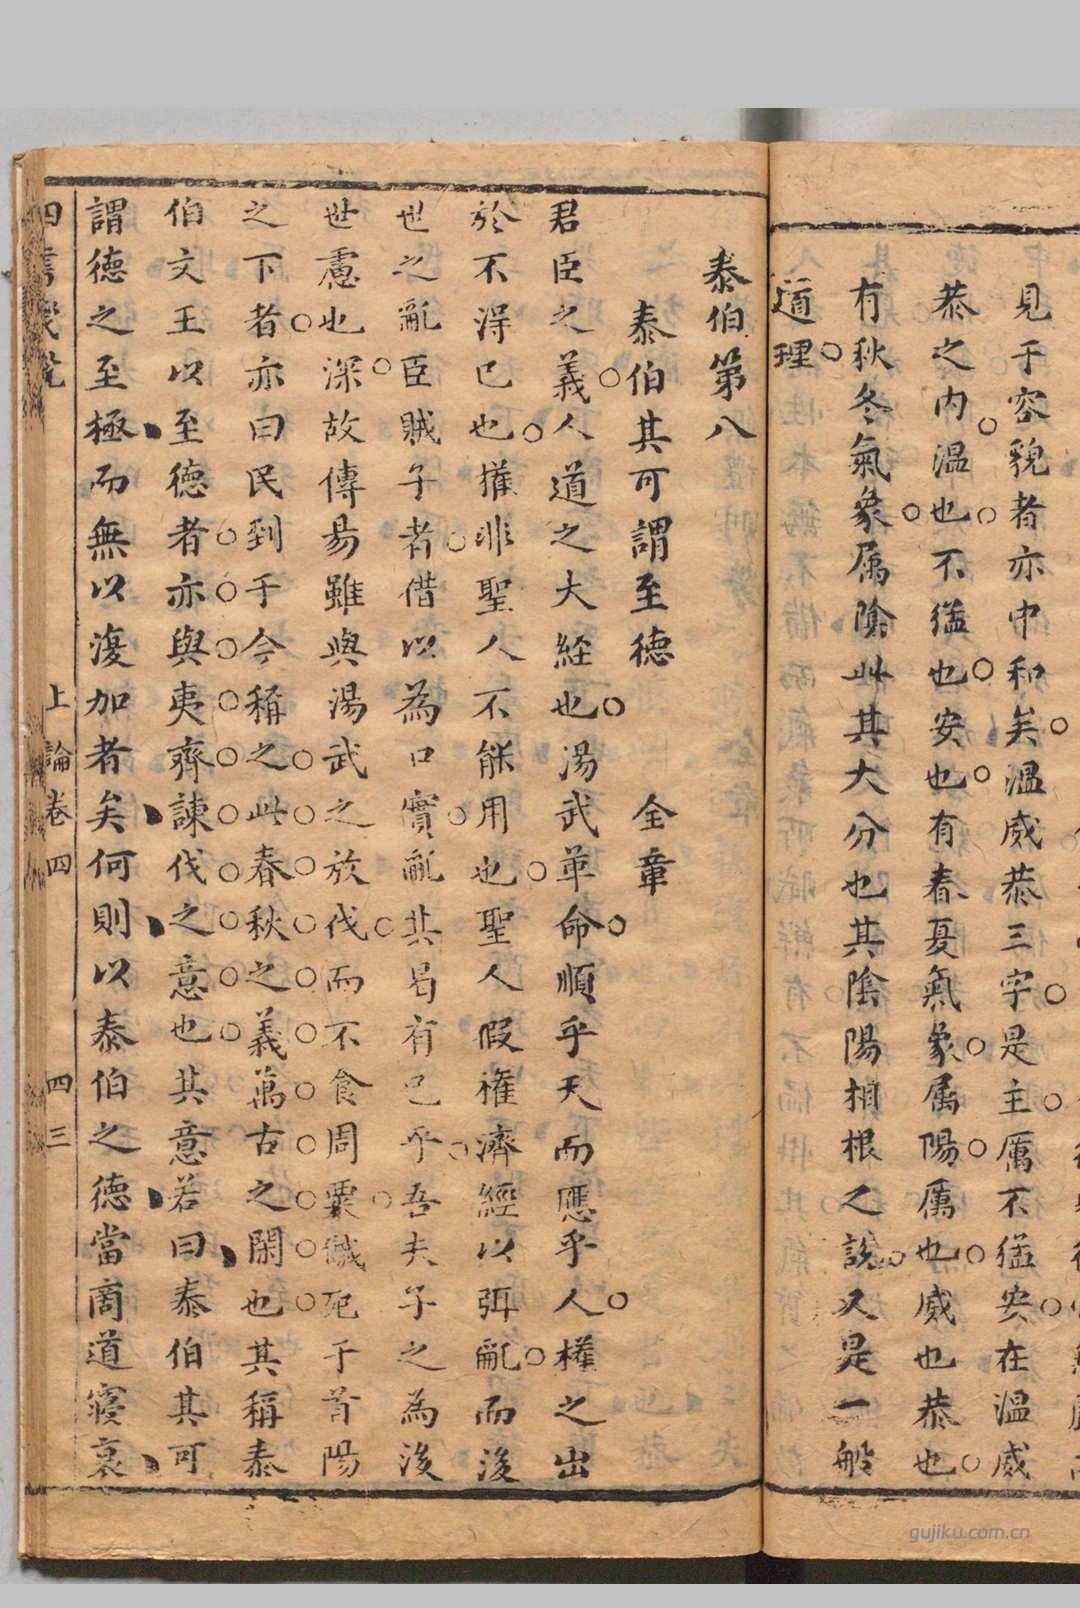 見于容貌者亦中和矣溫威恭三字是主厲不猛安在溫威
恭之內溫也不猛也安也有春夏氣象属陽厲也威也恭也
有秋冬氣象属陰此其大分也其陰陽相根之説又是一般
道理
泰伯第八
泰伯其可謂至德 全章
君臣之義人道之大経也湯武革命順乎天而應乎人權之出
於不淂已也權非聖人不能用也聖人假權濟經以弭亂而後
世之亂臣賊子者借以為口實亂其曷有已乎吾夫子之為後
世慮也深故傳易雖與湯武之放伐而不食周粟餓死于首陽
之下者亦曰民到于今稱之此春秋之義萬古之閑也其稱泰
伯文王以至德者亦與夷齊諫伐之意也其意若曰泰伯其可
謂德之至極而無以復加者矣何則以泰伯之德當商道寖衰
四書
上論卷四
四三
gujiku.com.cn